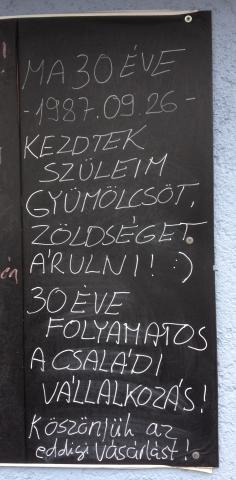 MA 30 ÉVE
-1987.09.26-
KEZDTEK
SZÜLEIM
GYÜMÖLCSÖT,
ZÖLDSÉGET
ÁRULNI! :)
30 ÉVE
FOLYAMATOS
A CSALÁDI
VÁLLALKOZÁS!
Köszönjük az
eddigi vásárlást!